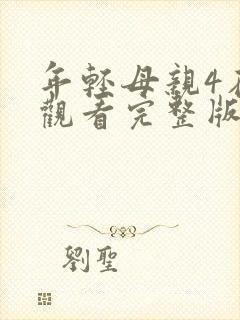 年輕母親4在
觀看完整版
劉聖